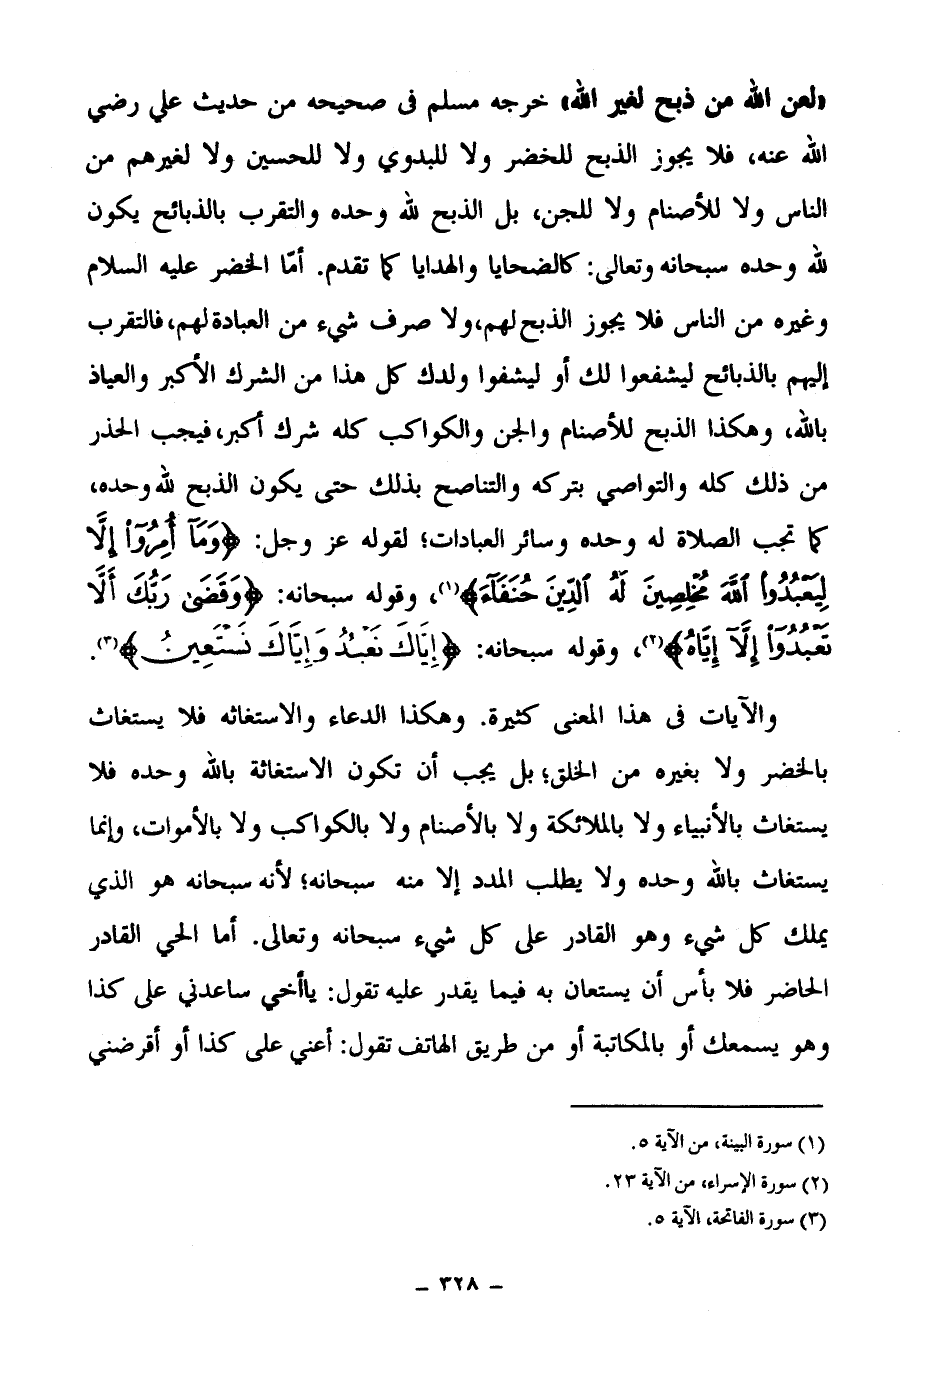 «لعن الله من ذبح لغير الله» خرجه مسلم فى صحيحه من حديث علي رضي
الله عنه، فلا يجوز الذبح للخضر ولا للبدوي ولا للحسين ولا لغيرهم من
الناس ولا للأصنام ولا للجن، بل الذبح لله وحده والتقرب بالذبائح يكون
لله وحده سبحانه وتعالى: كالضحايا والهدايا كما تقدم. أمّا الخضر عليه السلام
وغيره من الناس فلا يجوز الذبح لهم، ولا صرف شيء من العبادة لهم، فالتقرب
إليهم بالذبائح ليشفعوا لك أو ليشفوا ولدك كل هذا من الشرك الأكبر والعياذ
بالله، وهكذا الذبح للأصنام والجن والكواكب كله شرك أكبر، فيجب الحذر
من ذلك كله والتواصي بتركه والتناصح بذلك حتى يكون الذبح لله وحده،
كما تجب الصلاة له وحده وسائر العبادات؛ لقوله عز وجل: ﴿وَمَآ أُمِرُوٓاْ إِلَّا
لِيَعۡبُدُواْ ٱللَّهَ مُخۡلِصِينَ لَهُ ٱلدِّينَ حُنَفَآءَ﴾(١)، وقوله سبحانه: ﴿وَقَضَىٰ رَبُّكَ أَلَّا
تَعۡبُدُوٓاْ إِلَّآ إِيَّاهُ﴾(٢)، وقوله سبحانه: ﴿إِيَّاكَ نَعۡبُدُ وَإِيَّاكَ نَسۡتَعِينُ﴾(٣).
والآيات فى هذا المعنى كثيرة. وهكذا الدعاء والاستغاثه فلا يستغاث
بالخضر ولا بغيره من الخلق؛ بل يجب أن تكون الاستغاثة بالله وحده فلا
يستغاث بالأنبياء ولا بالملائكة ولا بالأصنام ولا بالكواكب ولا بالأموات، وإنما
يستغاث بالله وحده ولا يطلب المدد إلا منه سبحانه؛ لأنه سبحانه هو الذي
يملك كل شيء وهو القادر على كل شيء سبحانه وتعالى. أما الحي القادر
الحاضر فلا بأس أن يستعان به فيما يقدر عليه تقول: ياأخي ساعدني على كذا
وهو يسمعك أو بالمكاتبة أو من طريق الهاتف تقول: أعني على كذا أو أقرضني
(١) سورة البينة، من الآية ٥.
(٢) سورة الإسراء، من الآية ٢٣.
(٣) سورة الفاتحة، الآية ٥.
– ٣٢٨ –